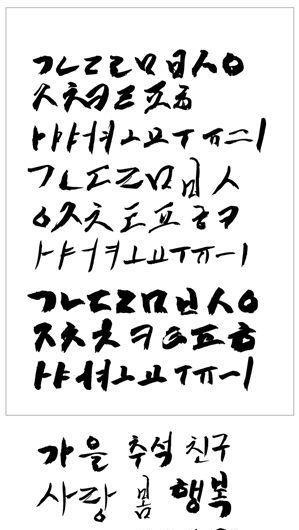 ㄱㄴㄷㄹㅁㅂㅅㅇ
ㅈㅊㅋㅌㅍㅎ
ㅏㅑㅓㅕㅗㅛㅜㅠㅡㅣ
ㄱㄴㄷㄹㅁㅂㅅ
ㅇㅈㅊㅌㅍㅎㅋ
ㅏㅑㅓㅕㅗㅛㅜㅠㅡㅣ
ㄱㄴㄷㄹㅁㅂㅅㅇ
ㅈㅊㅊㅋㅌㅍㅎ
ㅏㅑㅓㅕㅗㅛㅜㅠㅡㅣ
가을 추석 친구
사랑 봄 행복